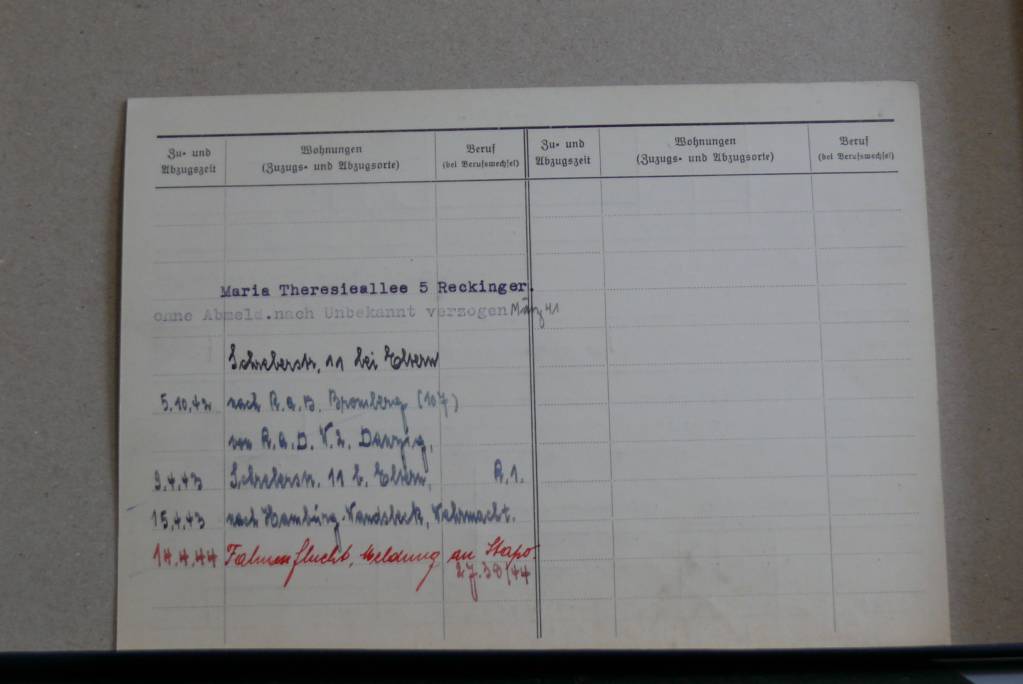 Zu- und Abzugszeit
Wohnungen (Zuzugs- und Abzugsorte)
Beruf (bei Berufswechsel)
Zu- und Abzugszeit
Wohnungen (Zuzugs- und Abzugsorte)
Beruf (bei Berufswechsel)
Maria Theresieallee 5 Reckinger.
ohne Abmeld.nach Unbekannt verzogen März 41
Schreberstr. 11 bei Eltern
5.10.42 nach R.a.D. Bromberg (107)
von R.a.D. Danzig,
9.4.43 Schreberstr. 11 b. Eltern, R.1.
15.4.43 nach Hamburg-Wandsbeck, Wehrmacht.
14.4.44 Fahnenflucht, Meldung an Stapo.
27.38/44